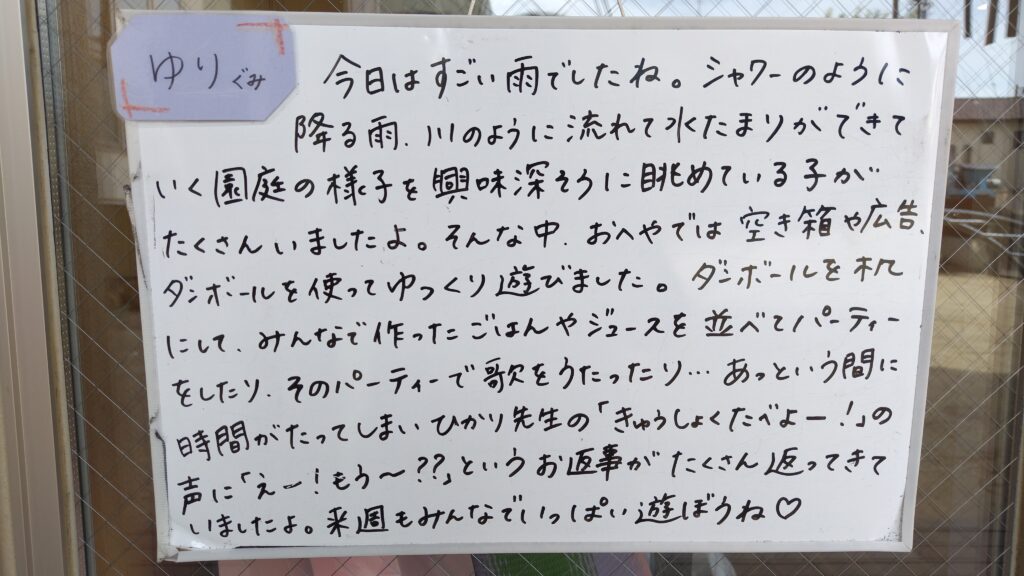 ゆりぐみ
今日はすごい雨でしたね。シャワーのように
降る雨、川のように流れて水たまりができて
いく園庭の様子を興味深そうに眺めている子が
たくさんいましたよ。そんな中、おへやでは空き箱や広告、
ダンボールを使ってゆっくり遊びました。ダンボールを机
にして、みんなで作ったごはんやジュースを並べてパーティー
をしたり、そのパーティーで歌をうたったり…あっという間に
時間がたってしまいひかり先生の「きゅうしょくたべよー!」の
声に「えー!もう〜??」というお返事がたくさん返ってきて
いましたよ。来週もみんなでいっぱい遊ぼうね♡